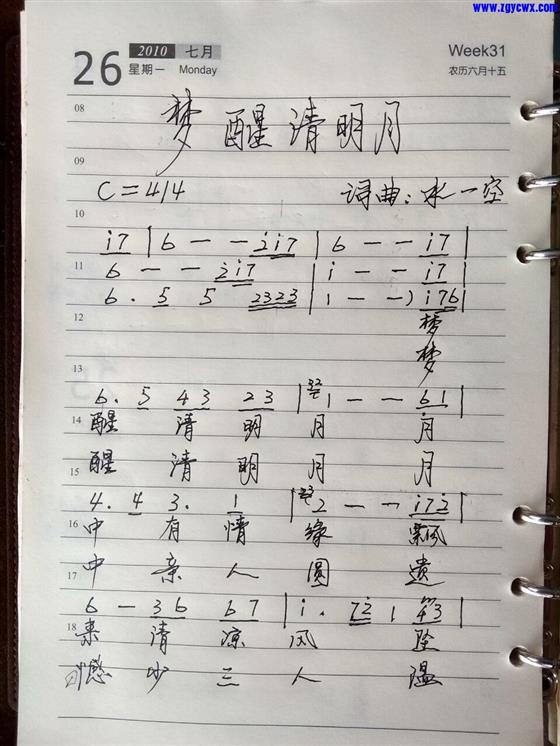 www.zgycwx.com
26 2010 七月 Week31
星期一 Monday 农历六月十五
08
梦醒清明月
09
C=4/4 词曲:水一空
10
i7 | 6 — — 2i7 | 6 — — i7 |
11
6 — — 2i7 | i — — i7 |
6. 5 5 2323 | 1 — —) i76 |
12
梦
梦
13
6. 5 43 23 | 32 1 — — 61 |
14 醒 清 明 月 月
15 醒 清 明 月 月
4. 4 3. 1 | 23 2 — — i72 |
16 中 有 情 缘 飘
17 中 亲 人 圆 遗
6 — 36 67 | i. 72 i 43 |
18 来 清 凉 风 坠
憾 吵 三 人 温